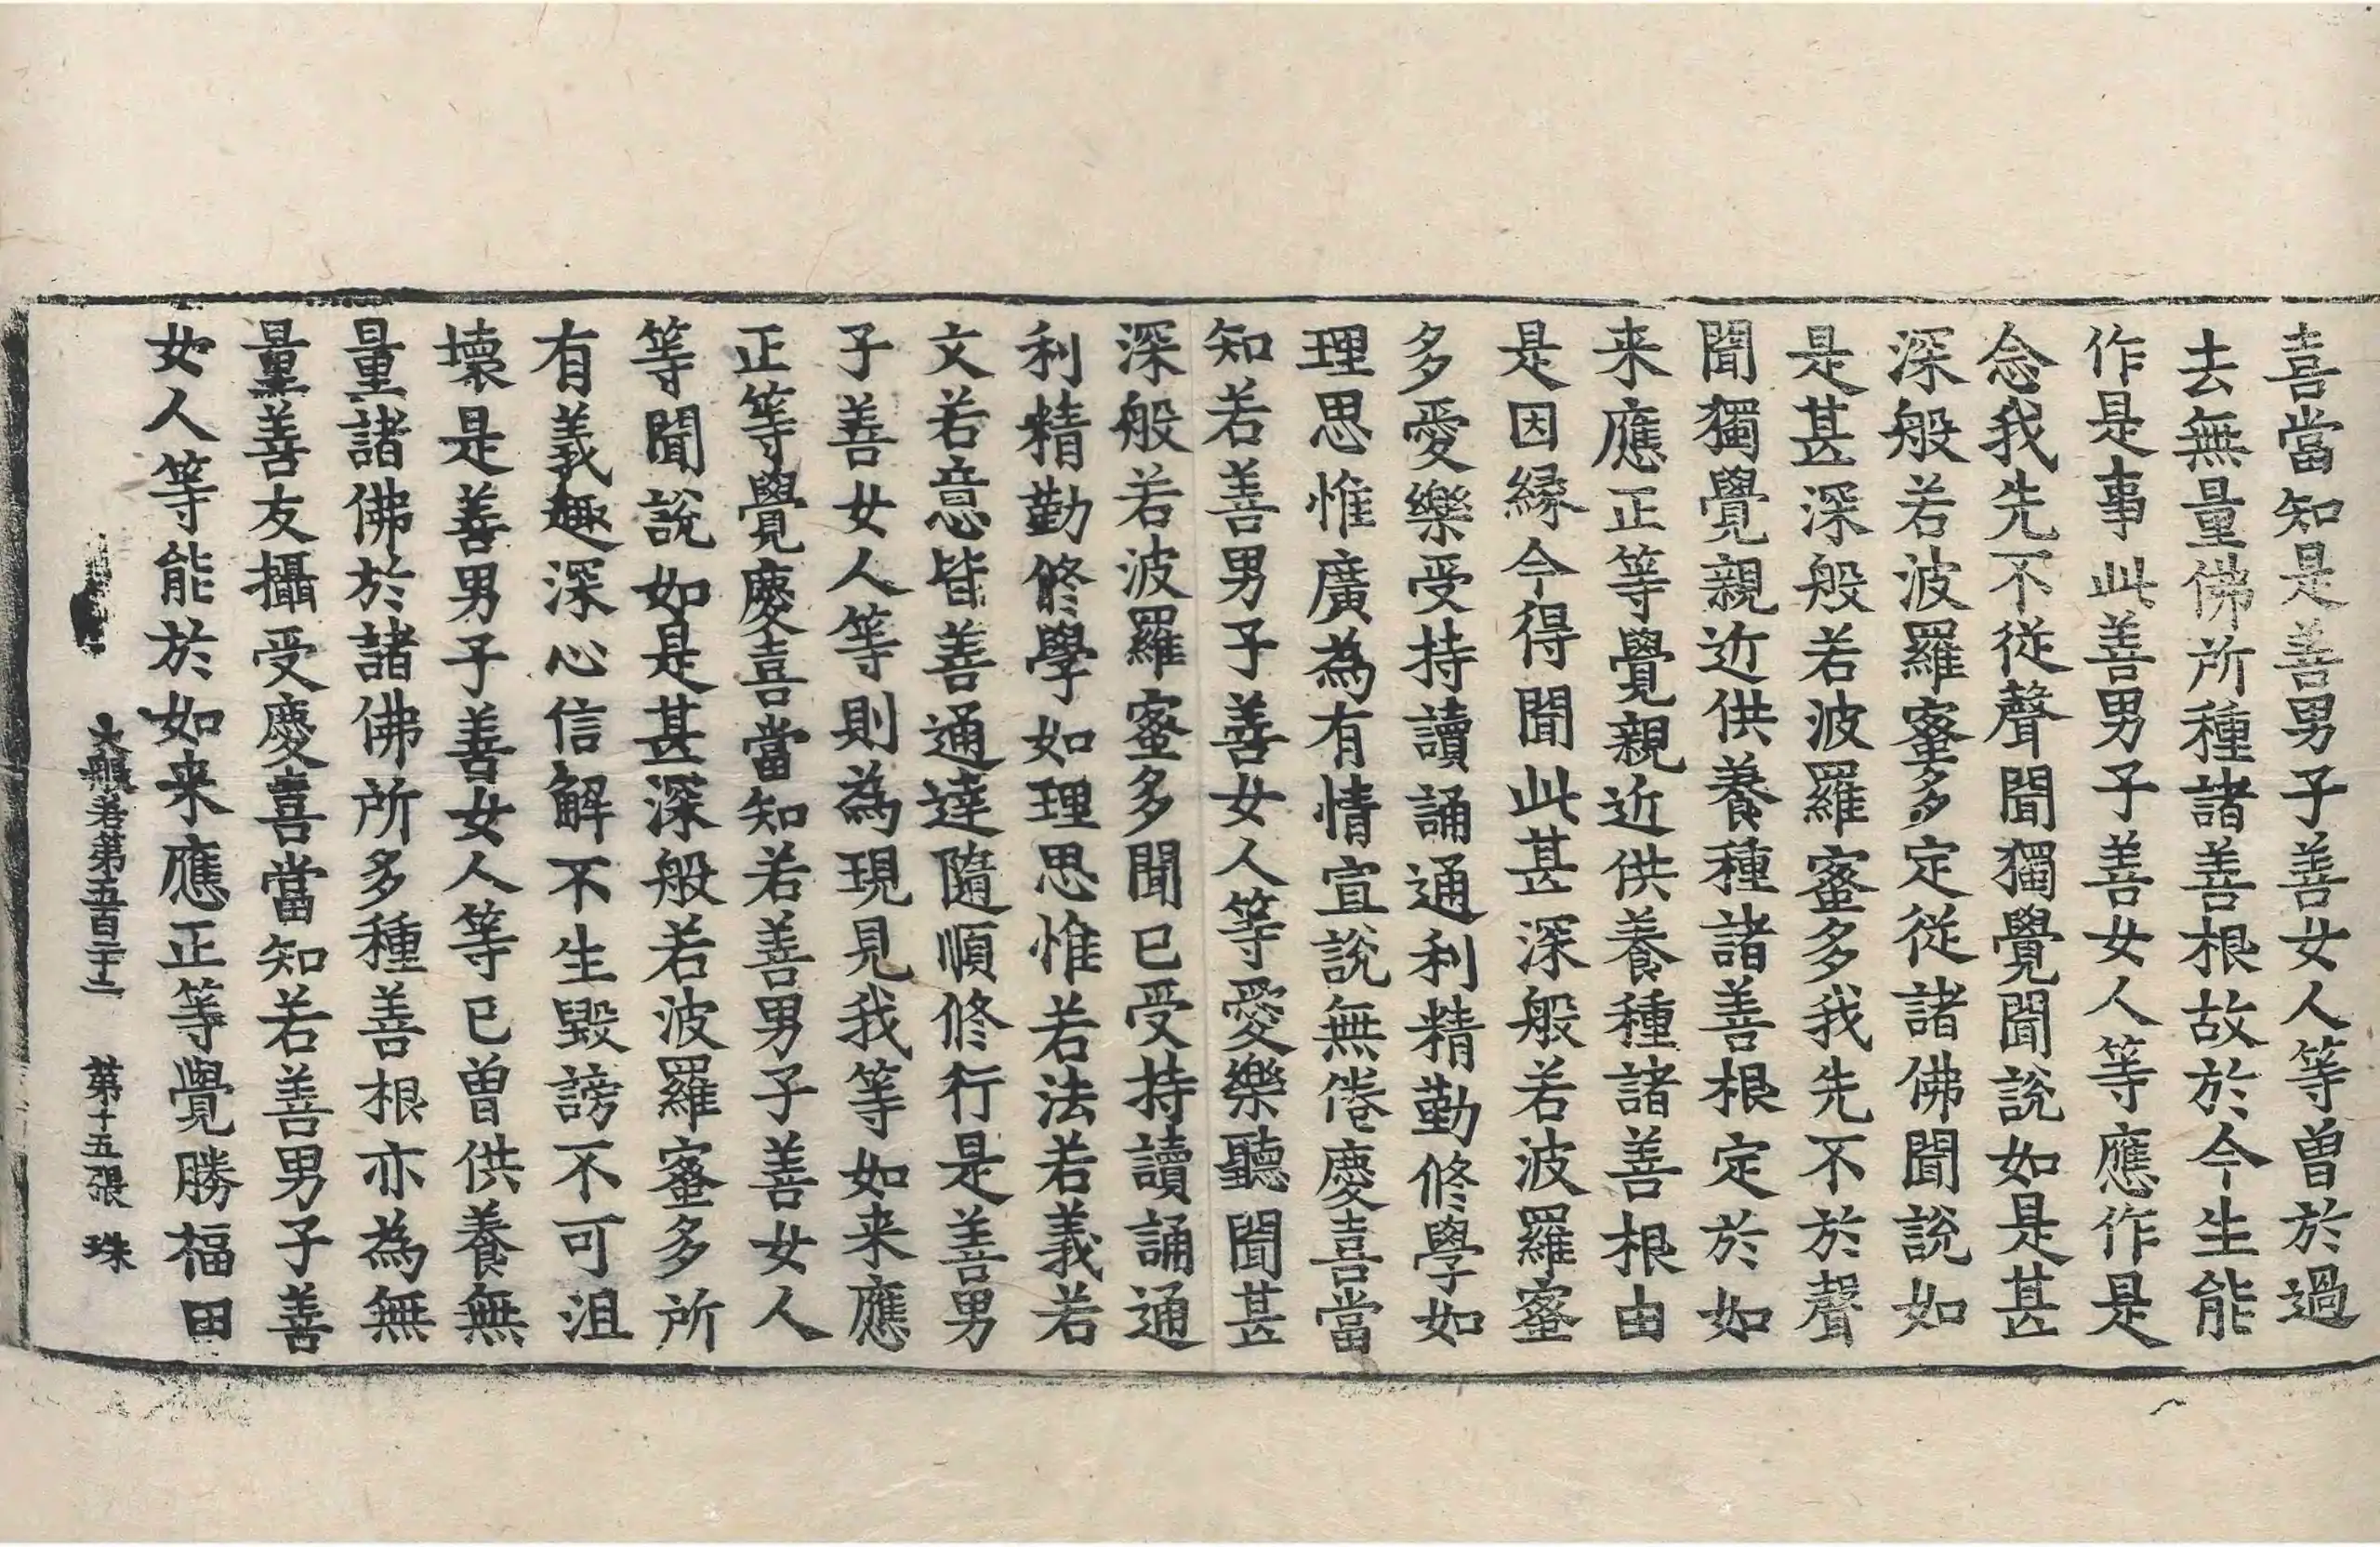 喜當知是善男子善女人等曽於過
去無量佛所種諸善根故於今生能
作是事此善男子善女人等應作是
念我先不從聲聞獨覺聞說如是甚
深般若波羅蜜多定從諸佛聞說如
是甚深般若波羅蜜多我先不於聲
聞獨覺親近供養種諸善根定於如
来應正等覺親近供養種諸善根由
是因縁今得聞此甚深般若波羅蜜
多愛樂受持讀誦通利精勤修學如
理思惟廣為有情宣說無倦慶喜當
知若善男子善女人等愛樂聽聞甚
深般若波羅蜜多聞已受持讀誦通
利精勤修學如理思惟若法若義若
文若意皆善通達隨順修行是善男
子善女人等則為現見我等如来應
正等覺慶喜當知若善男子善女人
等聞說如是甚深般若波羅蜜多所
有義趣深心信解不生毀謗不可沮
壞是善男子善女人等已曽供養無
量諸佛於諸佛所多種善根亦為無
量善友攝受慶喜當知若善男子善
女人等能於如来應正等覺勝福田
大般若第五百二十二 第十五張 珠